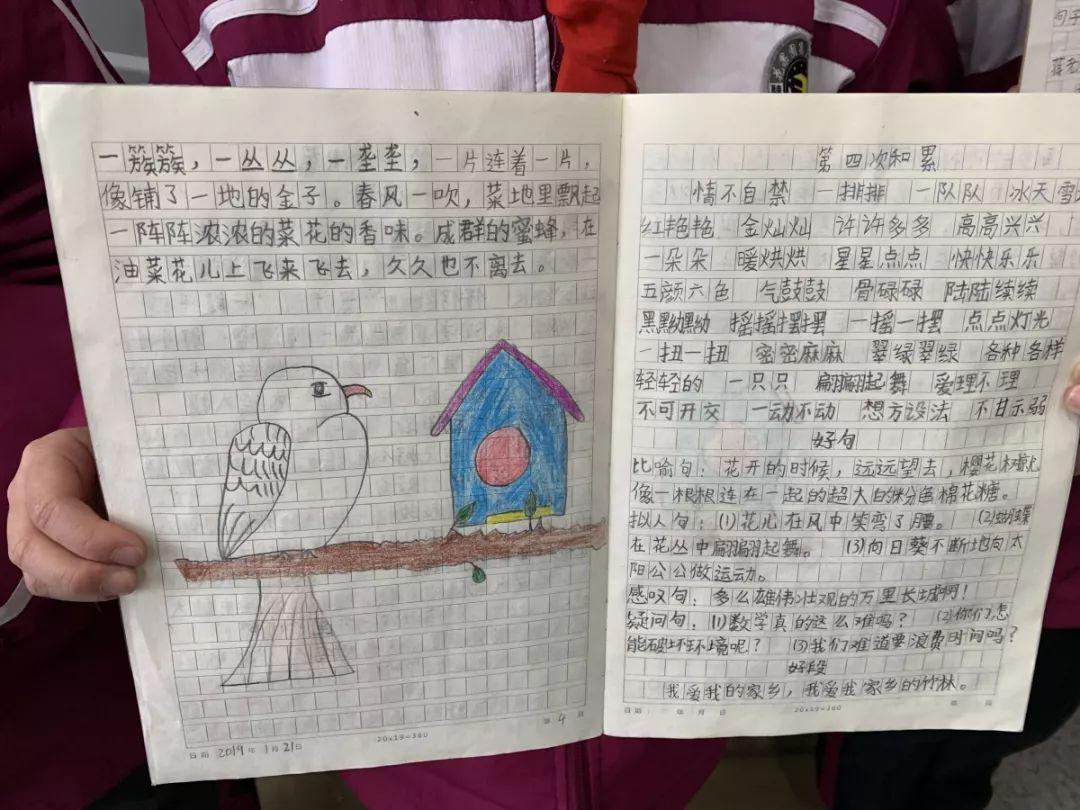 一簇簇，一丛丛，一垄垄，一片连着一片，
像铺了一地的金子。春风一吹，菜地里飘起
一阵阵浓浓的菜花的香味。成群的蜜蜂，在
油菜花儿上飞来飞去，久久也不离去。
日期 2019年 1月 21日
20x19=380
第 4 页
第四次积累
情不自禁 一排排 一队队 冰天雪
红艳艳 金灿灿 许许多多 高高兴兴
一朵朵 暖烘烘 星星点点 快快乐乐
五颜六色 气鼓鼓 骨碌碌 陆陆续续
黑黝黝 摇摇摆摆 一摇一摆 点点灯光
一扭一扭 密密麻麻 翠绿翠绿 各种各样
轻轻的 一只只 翩翩起舞 爱理不理
不可开交 一动不动 想方设法 不甘示弱
好句
比喻句：花开的时候，远远望去，樱花树就
像一根根连在一起的超大的粉色棉花糖。
拟人句：(1)花儿在风中笑弯了腰。 (2)蝴蝶
在花丛中翩翩起舞。 (3)向日葵不断地向太
阳公公做运动。
感叹句：多么雄伟壮观的万里长城啊！
疑问句：(1)数学真的这么难吗？ (2)你们怎
能破坏环境呢？ (3)我们难道要浪费时间吗？
好段
我爱我的家乡，我爱我家乡的竹林。
日期 年 月 日
20x19=380
第 页
句子